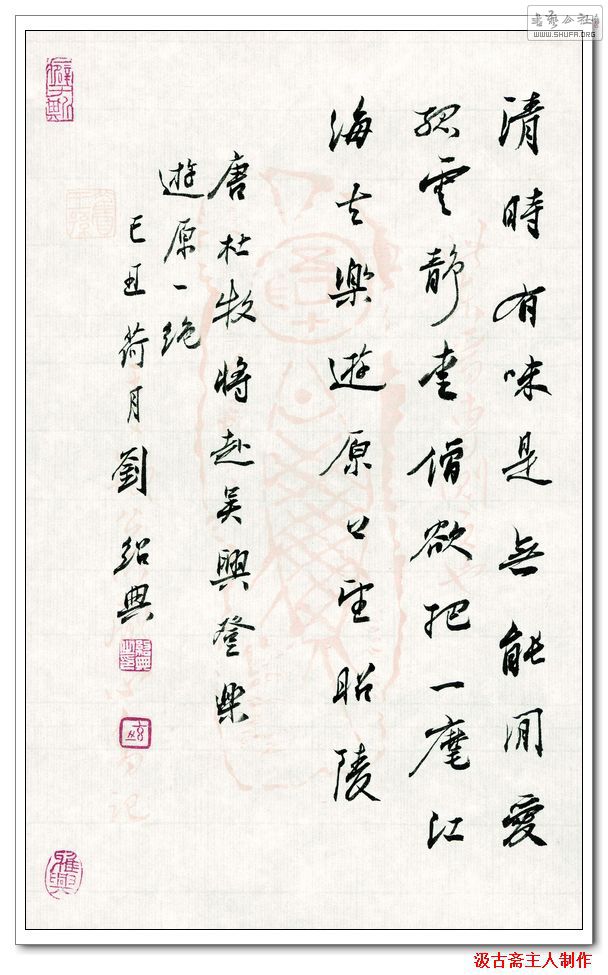 書艺公社
WWW.SHUFA.ORG
清時有味是無能閒愛
孤雲靜愛僧欲把一麾江
海去樂遊原上望昭陵
唐杜牧將赴吳興登樂
遊原一絕
己丑荷月劉紹典
雅興
汲古斋主人制作